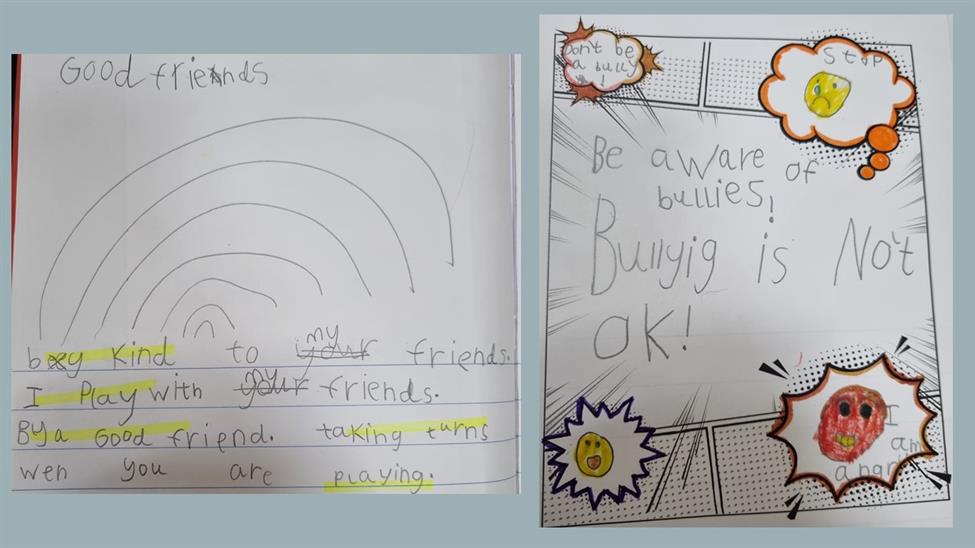 Good friends
by kind to my friends.
I Play with my friends.
By a Good friend. taking turns
wen you are playing.
Don't be
a bully
!
Stop
Be aware of
bullies!
Bullyig is Not
OK!
I
am
angry